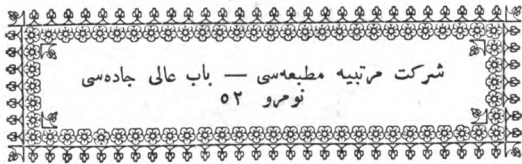 شرکت مرتبیه مطبعه‌سی — باب عالی جاده‌سی
نومرو ۵۲